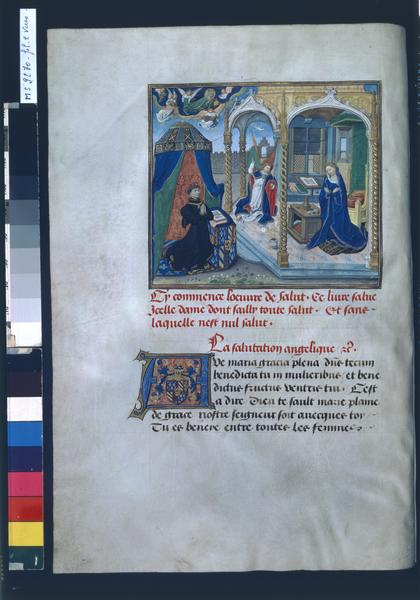 MS 9270 - fol. 2 Verso
Cy commence loeuure de salut. Ce liure salue
Icelle dame dont sailly toute salut. Et sans
laquelle nest nul salut.
La salutation angelique
Aue maria gracia plena dns tecum
benedicta tu in mulieribus / et bene
dictus fructus ventris tui. Cest
a dire. Dieu te sault marie plaine
de grace nostre seigneur soit auecques toy
Tu es benete entre toutes les femmes